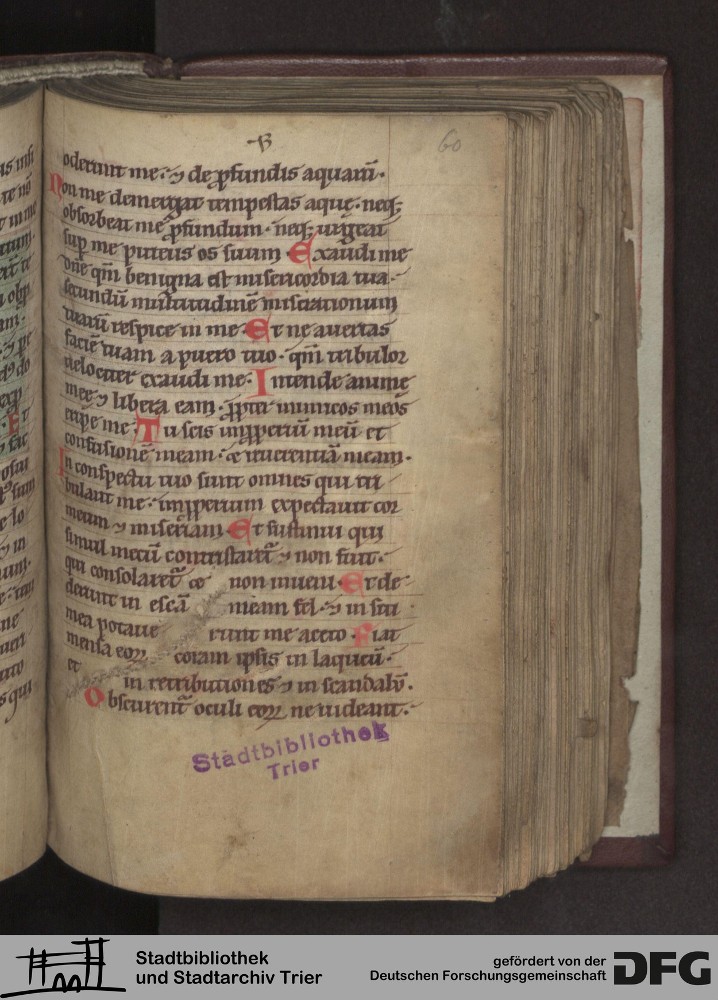 60
oderunt me · ⁊ de ꝓfundis aquarū ·
Non me demergat tempestas aquę · neq;
obsorbeat me ꝓfundum · neq; urgeat
suꝑ me puteus os suum Exaudi me
dn̄e qm̄ benigna est misericordia tua ·
secundū multitudinē miserationum
tuarū respice in me · Et ne avertas
faciē tuam a puero tuo · qm̄ tribulor
velociter exaudi me · Intende animę
meę ⁊ libera eam · ꝓpter inimicos meos
eripe me · Tu scis inꝓperiū meū et
confusionē meam · & reverentiā meam ·
In conspectu tuo sunt omnes qui tri
bulant me · inꝓperium expectavit cor
meum ⁊ miseriam Et sustinui qui
simul mecū contristaret᷑ ⁊ non fuit ·
qui consolaret᷑ ce non inveni · Et de
derunt in escā meam fel · ⁊ in siti
mea potave runt me aceto · Fiat
mensa eoꝝ coram ipsis in laqueū ·
et in retributiones ⁊ in scandalū ·
Obscurent᷑ oculi eoꝝ ne videant ·
Stadtbibliothek
Trier
Stadtbibliothek
und Stadtarchiv Trier
gefördert von der
Deutschen Forschungsgemeinschaft
DFG